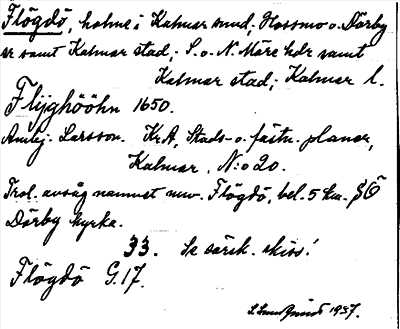 Flögdö, holme i Kalmar sund; Hossmo o. Dörby
sr samt Kalmar stad; S. o. N. Möre hdr samt
Kalmar stad; Kalmar l.
Flijghööhn 1650.
Larsson. KrA, Stads- o. fästn. planer,
Kalmar. N:o 20.
Trol. avsåg namnet nuv. Flögdö, bel. 5 km. SÖ
Dörby kyrka.
33. Se särsk. skiss!
Flögdö G. 17.
1937.